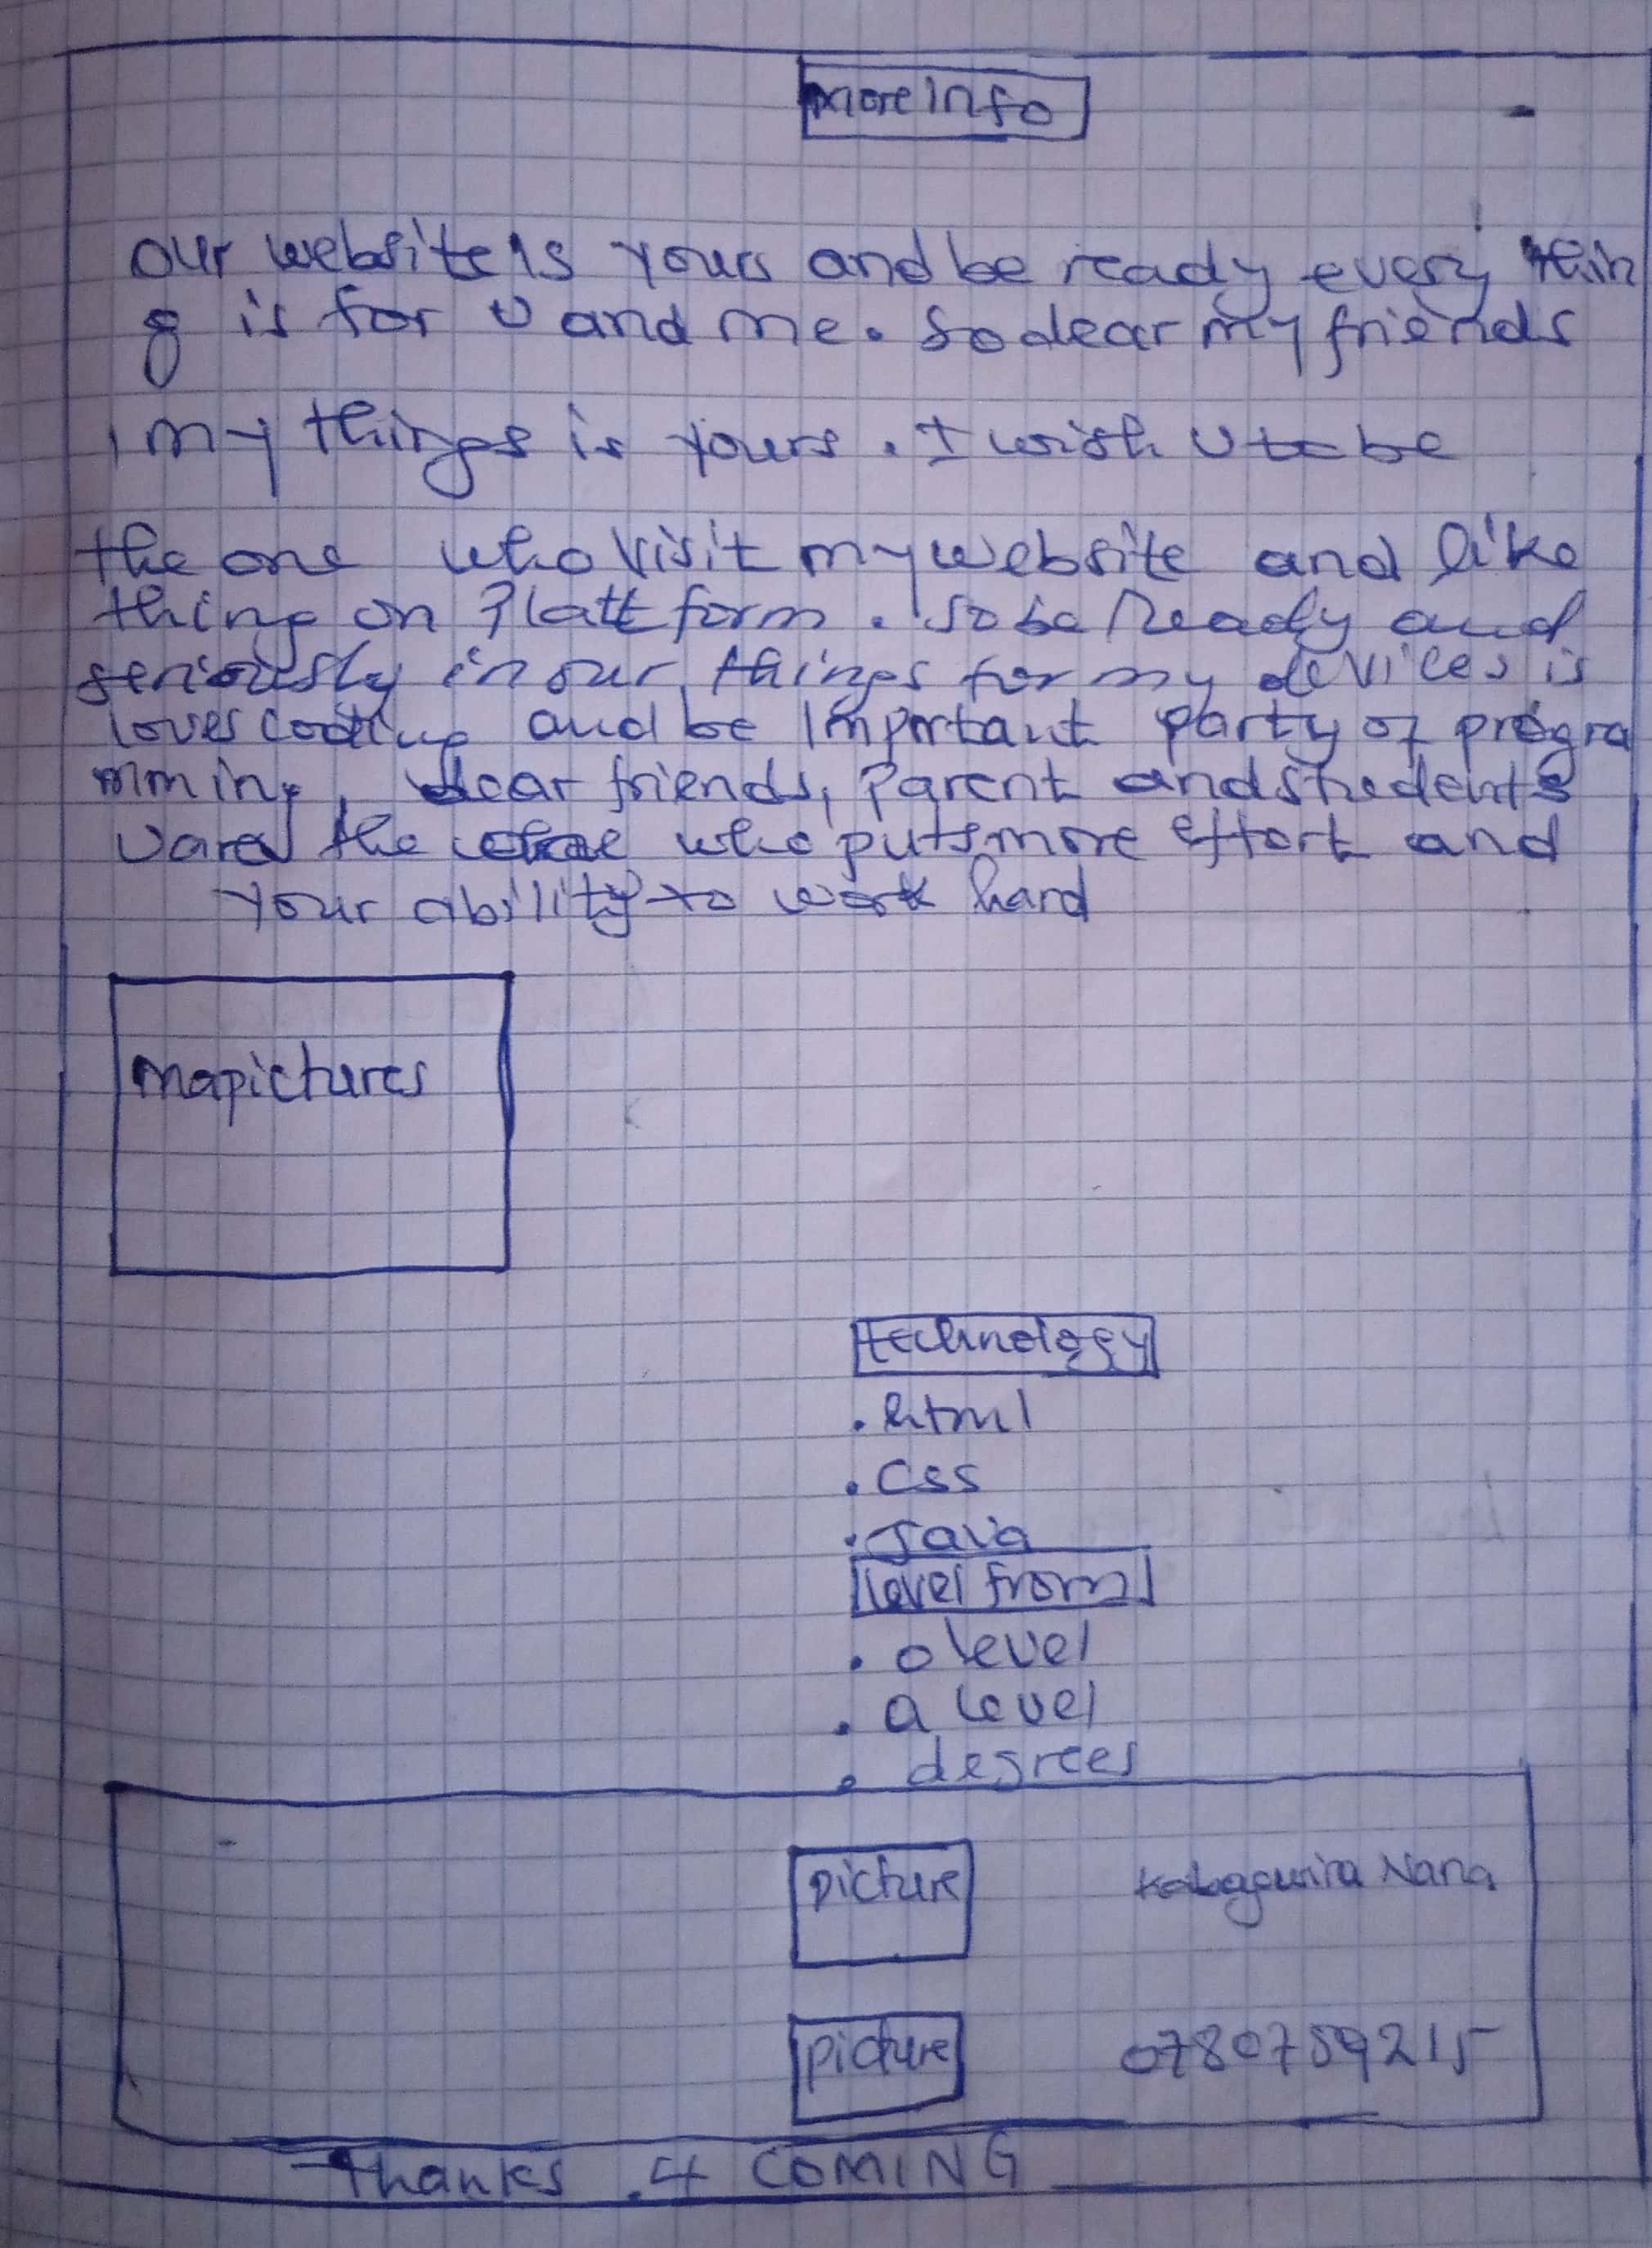 more info
our website is yours and be ready every thin
g is for U and me. So dear my friends
my things is yours. I wish U to be
the one who visit my website and like
thing on Plattform. So be ready and
seriously in our things for my devices is
loves coding and be important party of progra
mming, dear friends, parent and students
U are the who puts more effort and
your ability to work hard
mapictures
technology
. html
. CSS
. Java
level from
. o level
. a level
. degrees
picture Nana
picture 0780759215
Thanks .4 COMING